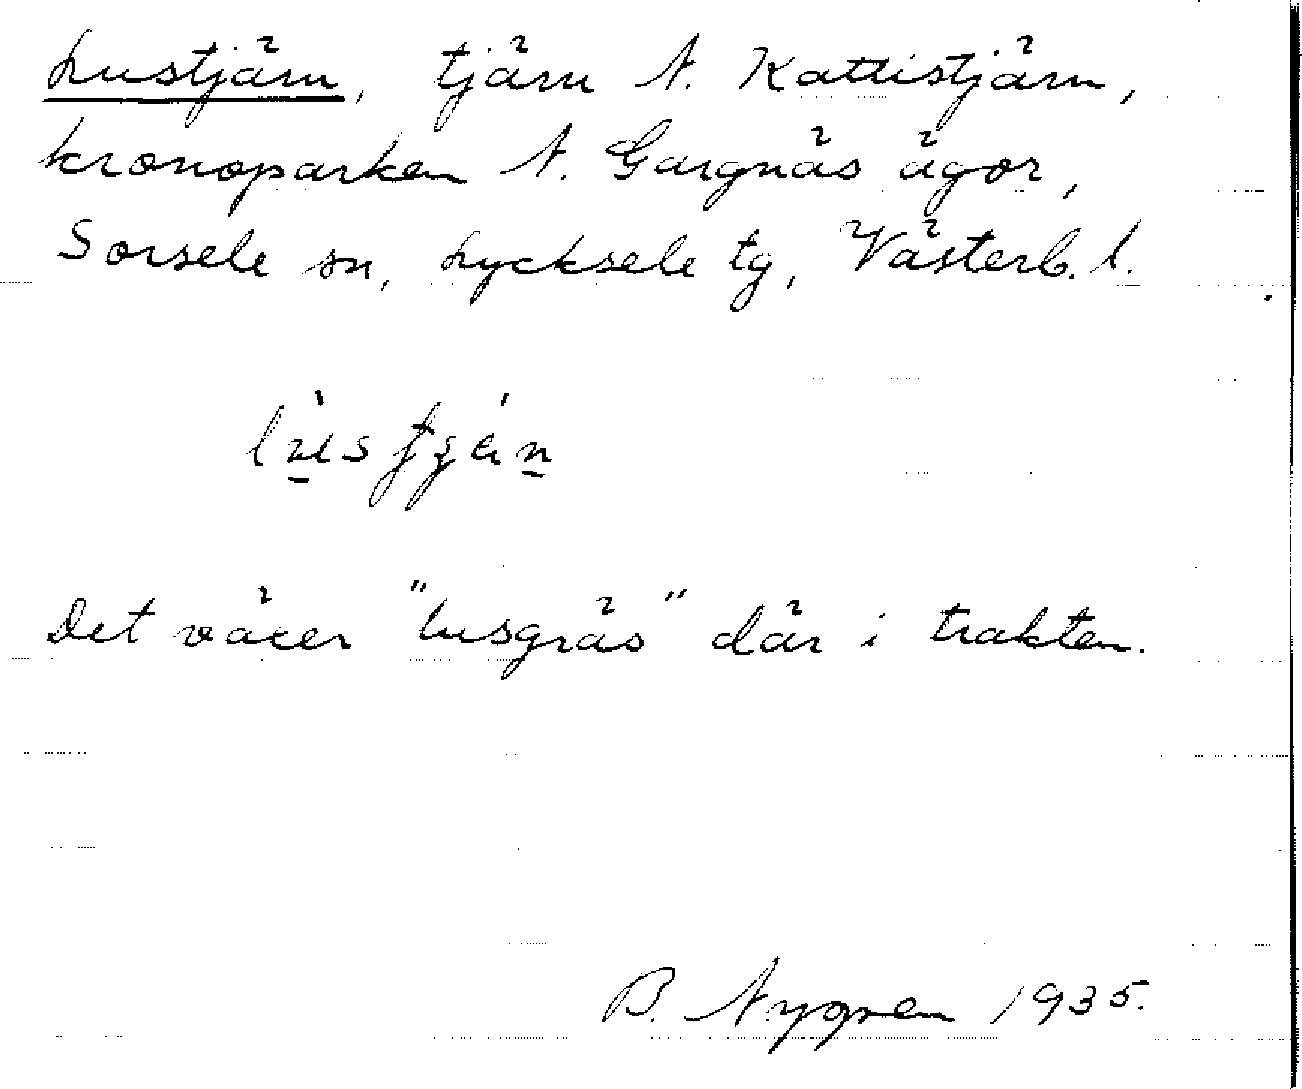 Lustjärn, tjärn N. Kattistjärn,
kronoparken N. Gargnäs ägor,
Sorsele sn, Lycksele tg, Västerb. l.
Det växer "lusgräs" där i trakten.
B. Nygren 1935.